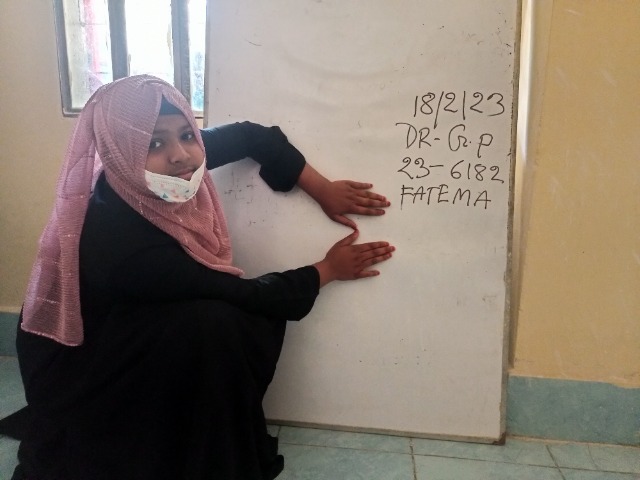 18/2/23
DR-Gr.p
23-6182
FATEMA